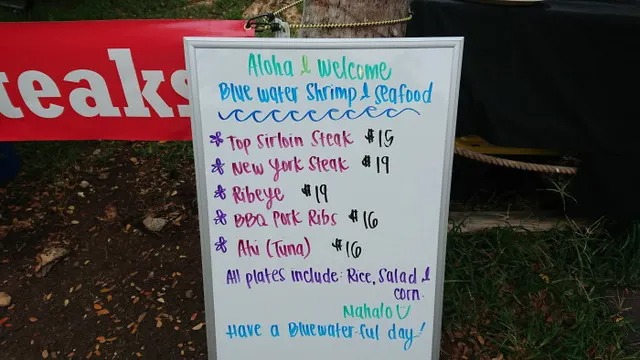 teaks
Aloha & Welcome
Blue water Shrimp & Seafood
Top Sirloin Steak $15
New York Steak $19
Ribeye $19
BBQ Pork Ribs $16
Ahi (Tuna) $16
All plates include: Rice, Salad &
corn.
Mahalo
Have a Bluewater-ful day!